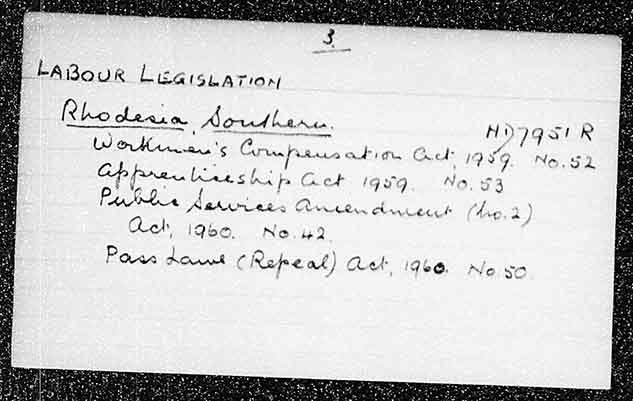 3.
LABOUR LEGISLATION
Rhodesia, Southern.
HD7951 R
Workmen's Compensation Act, 1959. No. 52
Apprenticeship Act 1959. No. 53
Public Services Amendment (No. 2)
Act, 1960. No. 42.
Pass Laws (Repeal) Act, 1960. No 50.